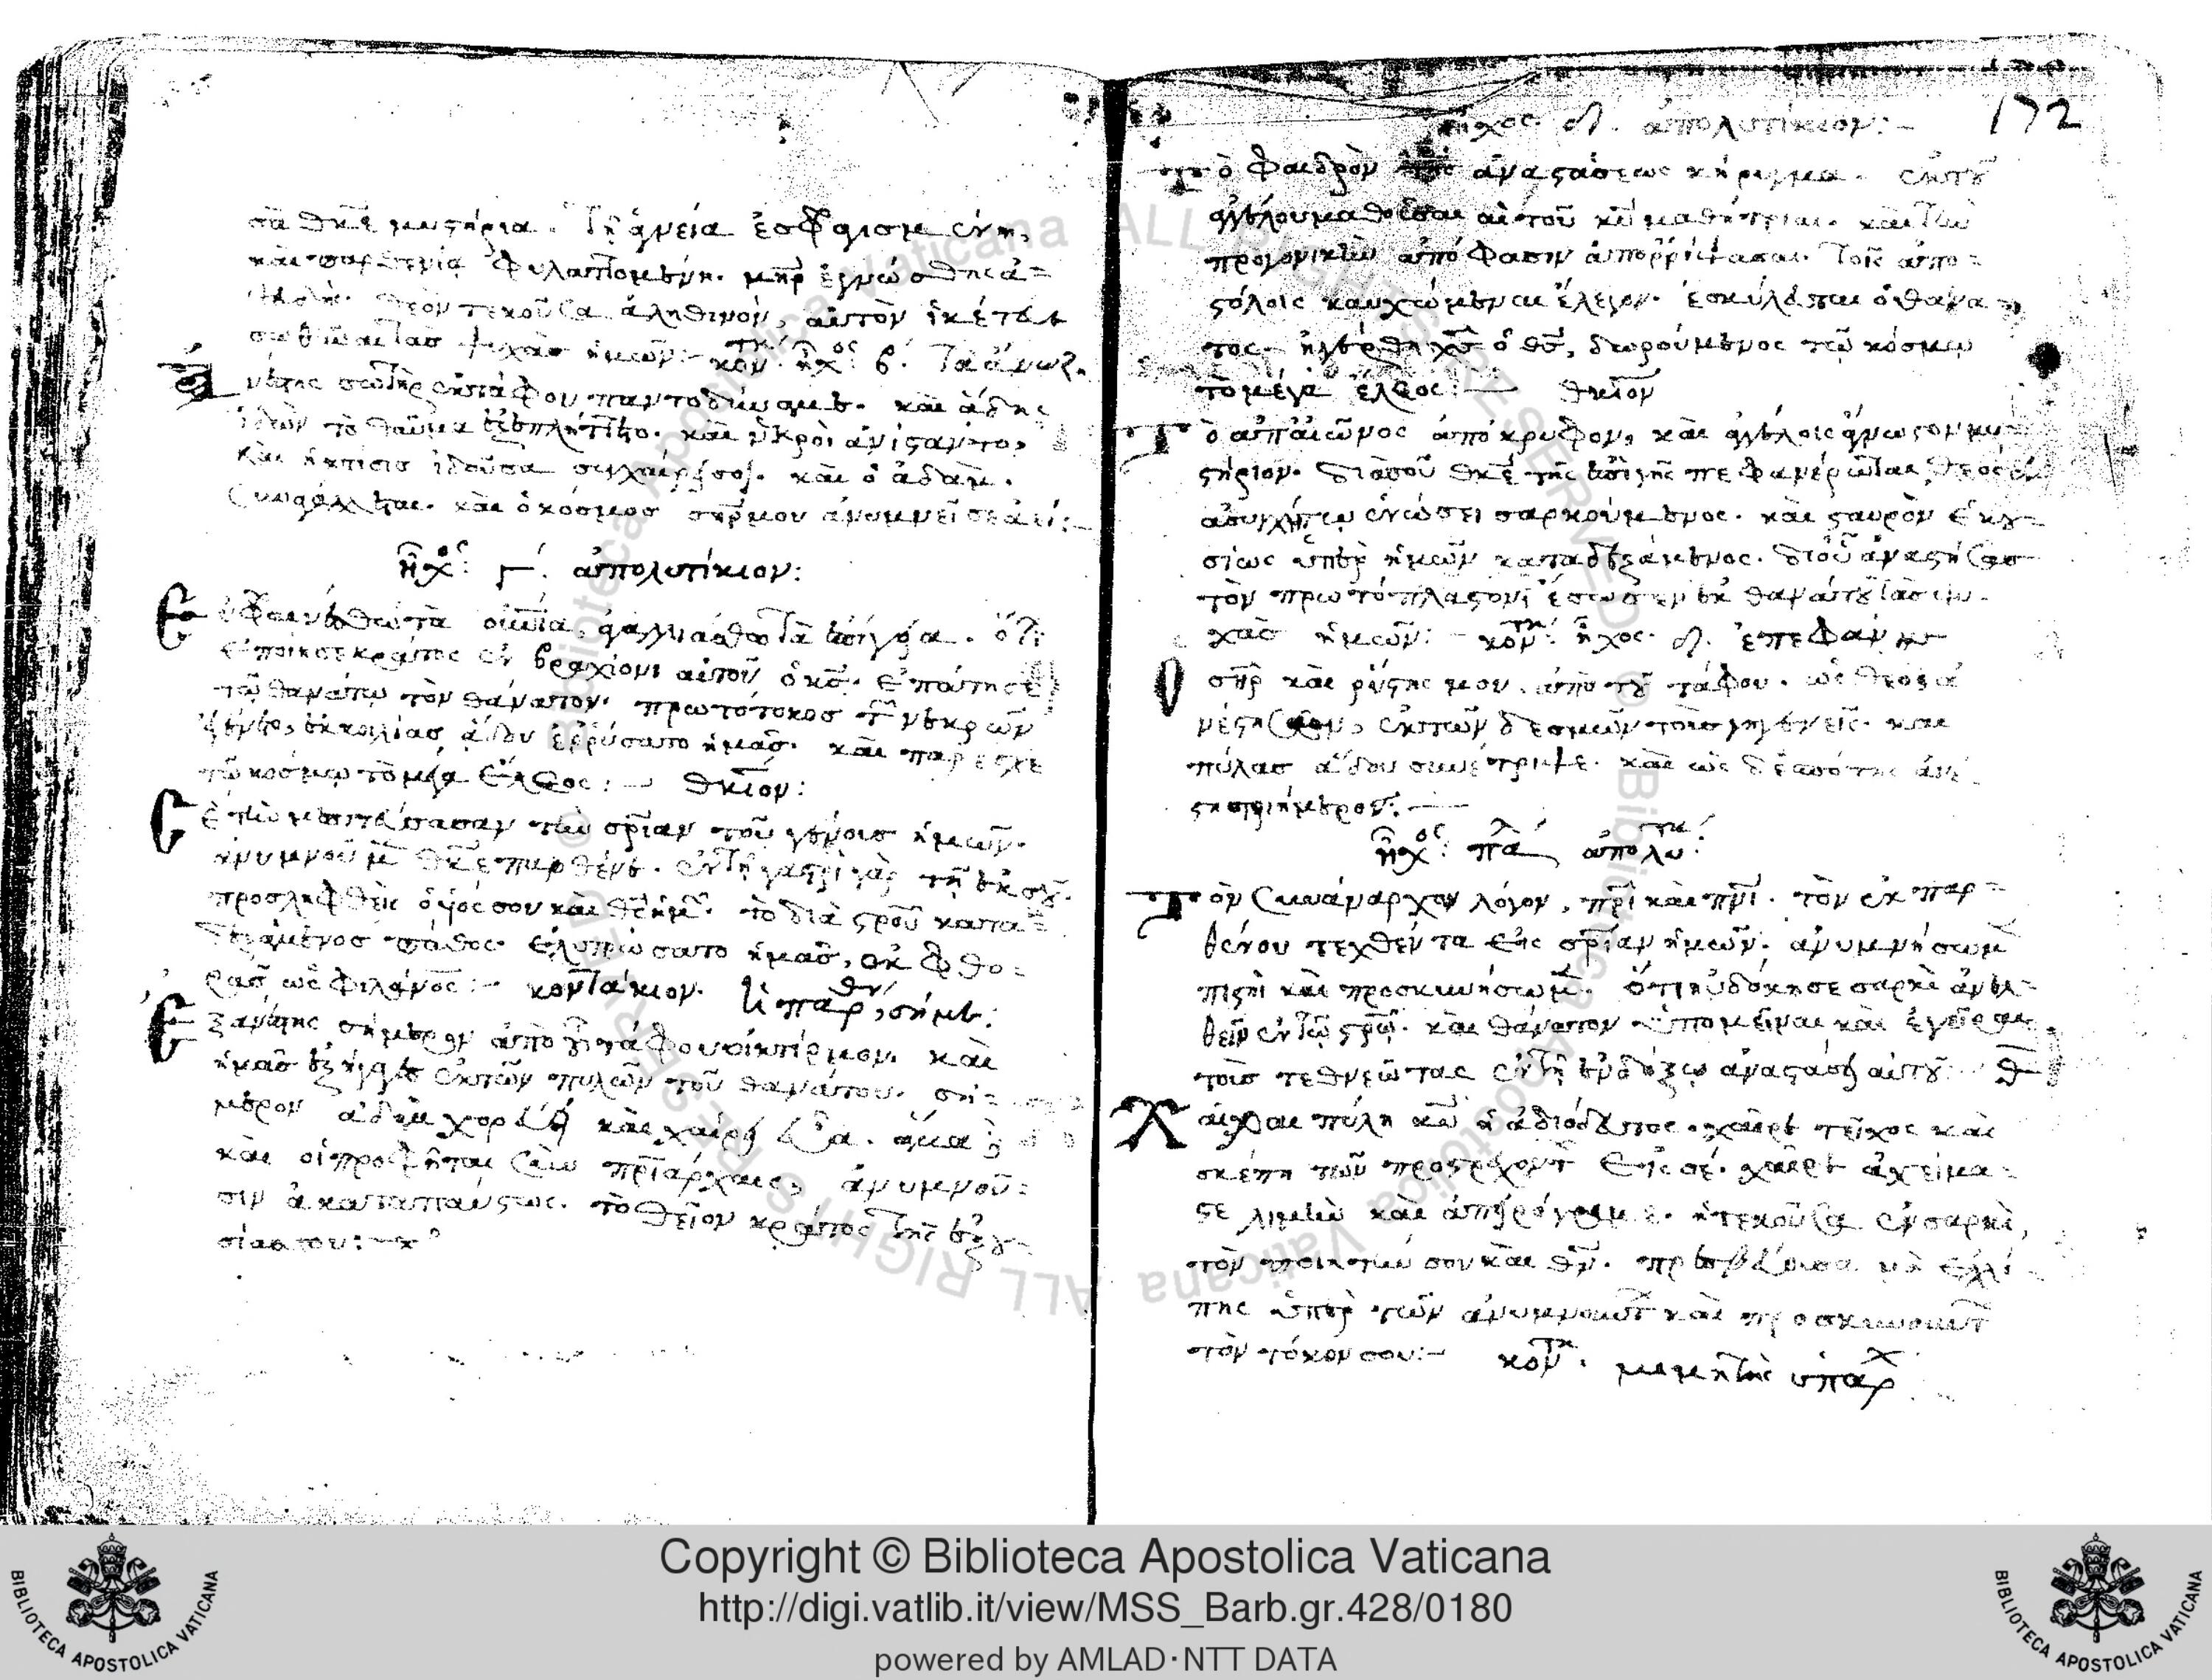 σὰ θκε μυστήρια. Τῇ ἁγνεία ἐσφραγισμένη,
καὶ παρθενία φυλαττομένη. μηρ ἐγνώσθης ἀ-
ψευδὴς θεὸν τεκοῦσα ἀληθινόν, αὐτὸν ἱκέτευε
σωθῆναι τὰς ψυχὰς ἡμῶν:- κον. ἦχος β. Τὰ ἄνω ζ.
νέστης σωτὴρ ἐκ τάφου παντοδύναμε. καὶ ἅδης
ἰδὼν τὸ θαῦμα ἐξεπλήττετο. καὶ νεκροὶ ἀνίσταντο,
καὶ ἡ κτίσις ἰδοῦσα συγχαίρει σοι. καὶ ὁ ἀδὰμ
συναγάλλεται. καὶ ὁ κόσμος σηρ μου ἀνυμνεῖ σε ἀεί:-
ἦχος γ. ἀπολυτίκιον:
Εὐφραινέσθω τὰ οὐνια, ἀγαλλιάσθω τὰ ἐπίγεια. ὅτι
ἐποίησε κράτος ἐν βραχίονι αὐτοῦ ὁ κς. ἐπάτησε
τῶ θανάτω τὸν θάνατον. πρωτότοκος τῶν νεκρῶν
ἐγένετο, ἐκ κοιλίας ἅδου ἐρρύσατο ἡμᾶς. καὶ παρέσχε
τῶ κόσμω τὸ μέγα ἔλεος:- θκίον:
Σὲ τὴν μεσιτεύσασαν τὴν σριαν τοῦ γένους ἡμῶν
ἀνυμνοῦμ θκε παρθένε. ἐν τῇ γαστρὶ γὰρ τῇ ἐκ σοῦ
προσληφθεὶς ὁ υἱός σου καὶ θς ἡμ. τὸ διὰ σρου κατα-
δεξάμενος πάθος ἐλυτρώσατο ἡμᾶς, ἐκ φθο-
ρᾶς ὡς φιλάνος:- κοντάκιον. Ἡ παρθν, σήμε:
Ἐξανέστης σήμερον ἀπὸ τοῦ τάφου οἰκτίρμον. καὶ
ἡμᾶς ἐξήγαγες ἐκ τῶν πυλῶν τοῦ θανάτου. σή-
μερον ἀδὰμ χορεύει καὶ χαίρει εὔα. ἅμα δὲ
καὶ οἱ προφῆται σὺν πριάρχαις, ἀνυμνοῦ-
σιν ἀκαταπαύστως. τὸ θεῖον κράτος τῆς ἐξου-
σίας σου:-
ἦχος δ. ἀπολυτίκιον:-
Τὸ φαιδρὸν τῆς ἀναστάσεως κήρυγμα. ἐκ τοῦ
ἀγγέλου μαθοῦσαι αἱ τοῦ κυ μαθήτριαι. καὶ τὴν
προγονικὴν ἀπόφασιν ἀπορρίψασαι. τοῖς ἀπο-
στόλοις καυχώμεναι ἔλεγον. ἐσκύλευται ὁ θάνα
τος. ἠγέρθη χς ὁ θς, δωρούμενος τῶ κόσμω
τὸ μέγα ἔλεος:- θκίον
Τὸ ἀπ' αἰῶνος ἀπόκρυφον, καὶ ἀγγέλοις ἄγνωστον μυ
στήριον. διὰ σοῦ θκε τοῖς ἐπὶ γῆς πεφανέρωται, θεὸς ἐν
ἀσυγχύτω ἑνώσει σαρκούμενος. καὶ σταυρὸν ἑκου-
σίως ὑπὲρ ἡμῶν καταδεξάμενος. δι' οὗ ἀναστήσας
τὸν πρωτόπλαστον, ἔσωσεν ἐκ θανάτου τὰς ψυ-
χὰς ἡμῶν:- κον. ἦχος δ. ἐπεφάνης
Ὁ σηρ καὶ ρύστης μου. ἀπὸ τοῦ τάφου. ὡς θεὸς ἀ
νέστησεν, ἐκ τῶν δεσμῶν τοὺς γηγενεῖς. καὶ
πύλας ἅδου συνέτριψε. καὶ ὡς δεσπότης ἀνέ
στη τριήμερος:-
ἦχος πλ α ἀπολυτι:
Τὸν συνάναρχον λόγον, πρι καὶ πνι. τὸν ἐκ παρ-
θένου τεχθέντα εἰς σριαν ἡμῶν. ἀνυμνήσωμ
πιστοὶ καὶ προσκυνήσωμ. ὅτι ηὐδόκησε σαρκὶ ἀνελ-
θεῖν ἐν τῶ σρω. καὶ θάνατον ὑπομεῖναι καὶ ἐγεῖραι
τοὺς τεθνεῶτας ἐν τῇ ἐνδόξω ἀναστάσει αὐτοῦ. θ
Χαῖραι πύλη κυ ἡ ἀδιόδευτος. χαῖρε τεῖχος καὶ
σκέπη τῶν προστρεχόντ εἰς σέ. χαῖρε ἀχείμα-
στε λιμὴν καὶ ἀπειρόγαμε. ἡ τεκοῦσα ἐν σαρκὶ,
τὸν ποιητήν σου καὶ θν. πρεσβεύουσα μὴ ἐλλί
πης ὑπὲρ τῶν ἀνυμνούντ καὶ προσκυνούντ
τὸν τόκον σου:- κον. μιμητὴς ὑπάρχ
172
Copyright © Biblioteca Apostolica Vaticana
http://digi.vatlib.it/view/MSS_Barb.gr.428/0180
powered by AMLAD·NTT DATA
BIBLIOTECA APOSTOLICA VATICANA
BIBLIOTECA APOSTOLICA VATICANA